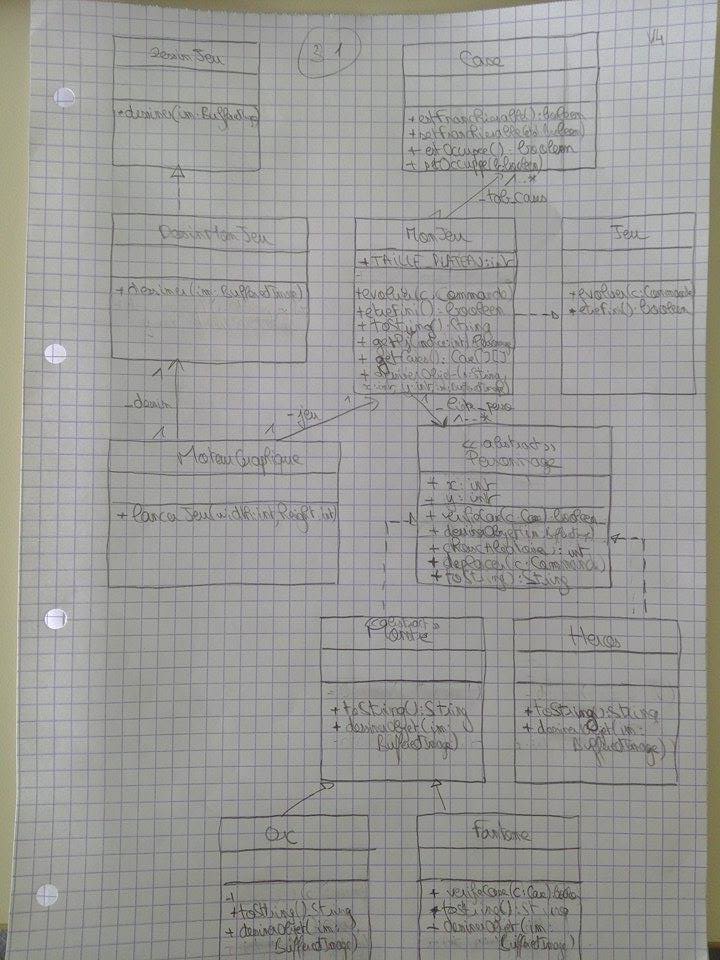 31
V4
DessinJeu
+dessiner(im: BufferedImage)
Case
+ estFranchissable(): boolean
+ setFranchissable(b: boolean)
+ estOccupee(): boolean
+ setOccupee(b: boolean)
_tab_cases
1..*
DessinMonJeu
+dessiner(im: BufferedImage)
MonJeu
+ TAILLE_PLATEAU: int
+evoluer(c: Commande)
+etreFini(): boolean
+ toString(): String
+ getPj(indice: int): Personnage
+ getCases(): Case[][]
+ dessinerObjet(s: String,
x: int, y: int, im: BufferedImage)
Jeu
+evoluer(c: Commande)
+ etreFini(): boolean
_dessin
1
1
_jeu
1
1
_liste_perso
1..*
MoteurGraphique
+ lancerJeu(width: int, height: int)
<<abstract>>
Personnage
+ x: int
+ y: int
+ verifCase(c: Case): boolean
+ dessinerObjet(im: BufferedImage)
+ : int
+ deplacer(c: Commande)
+ toString(): String
<<abstract>>
Heros
+toString(): String
+ dessinerObjet(im:
BufferedImage)
+toString(): String
+ dessinerObjet(im:
BufferedImage)
Orc
+toString(): String
+ dessinerObjet(im:
BufferedImage)
Fantome
+ verifCase(c: Case): boolean
+toString(): String
+ dessinerObjet(im:
BufferedImage)